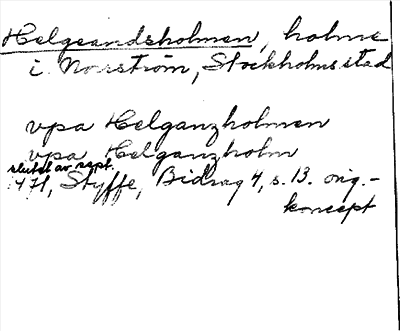 Helgeandsholmen, holme
i Norrström, Stockholms stad
vpa Helganzholmen
vpa Helganzholm
slutet av sept.
1471, Styffe, Bidrag 4, s. 13. orig.-
koncept